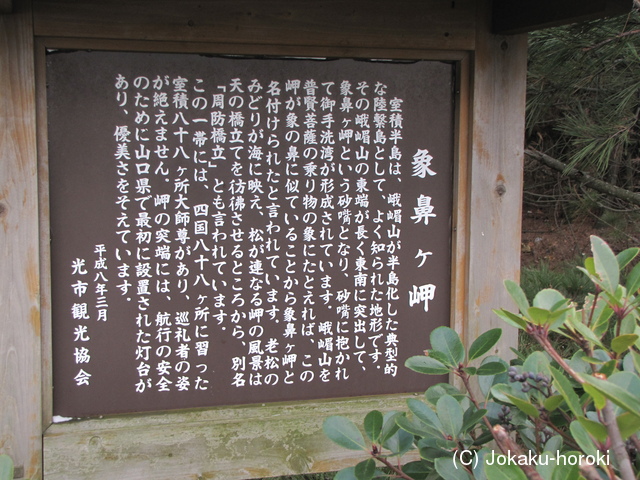 象鼻ヶ岬
室積半島は、峨嵋山が半島化した典型的
な陸繋島として、よく知られた地形です。
その峨嵋山の東端が長く東南に突出して、
象鼻ヶ岬という砂嘴となり、砂嘴に抱かれ
て御手洗湾が形成されています。峨嵋山を
普賢菩薩の乗り物の象にたとえれば、この
岬が象の鼻に似ていることから象鼻ヶ岬と
名付けられたと言われています。老松の
みどりが海に映え、松が連なる岬の風景は
天の橋立てを彷彿させるところから、別名
「周防橋立」とも言われています。
この一帯には、四国八十八ヶ所に習った
室積八十八ヶ所大師尊があり、巡礼者の姿
が絶えません。岬の突端には、航行の安全
のために山口県で最初に設置された灯台が
あり、優美さをそえています。
平成八年三月
光市観光協会
(C) Jokaku-horoki